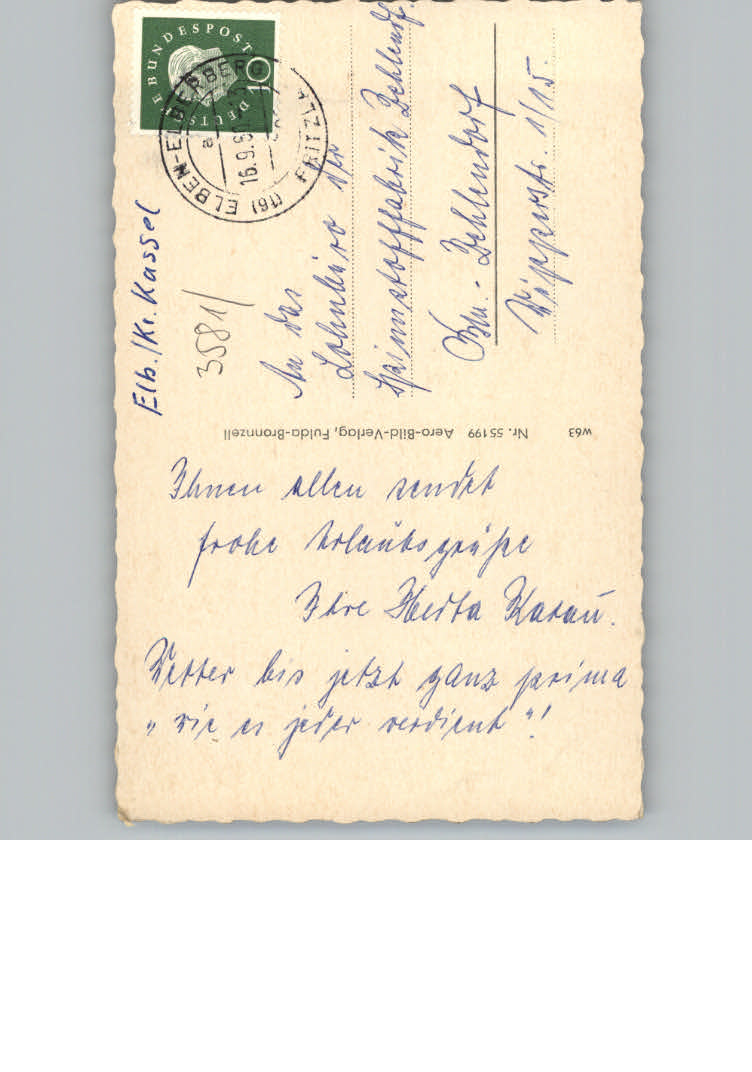 DEUTSCHE BUNDESPOST
10
(16) ELBEN-ELBERBERG
a
16.9.60
FRITZLA
Elb./Kr. Kassel
3581/
An das
Lohnbüro der
Spinnstofffabrik Zehlendorf
Bln.-Zehlendorf
1/15.
W63 Nr. 55199 Aero-Bild-Verlag, Fulda-Bronnzell
Ihnen allen sendet
frohe Urlaubsgrüße
Ihre Herta Karau.
Wetter bis jetzt ganz prima
„wie es jeder verdient"!